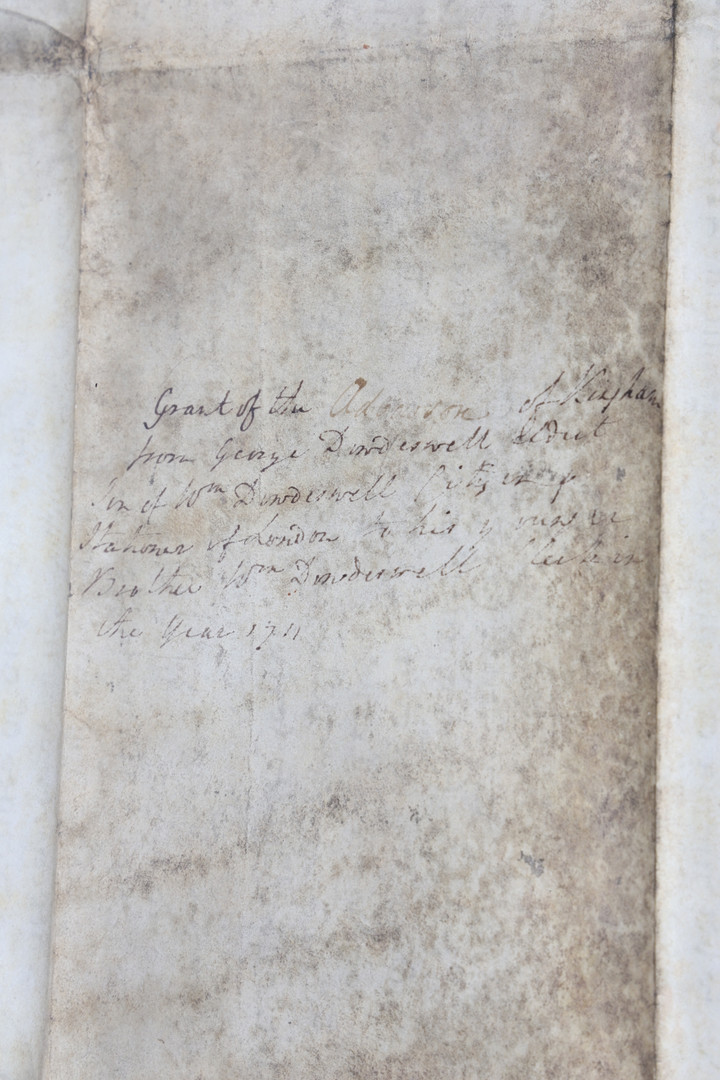 Grant of the Advowson of Kingham
from George Dowdeswell Eldest
Son of Wm Dowdeswell Citizen &
Stationer of London to his younger
Brother Wm Dowdeswell Clerk in
the Year 1711